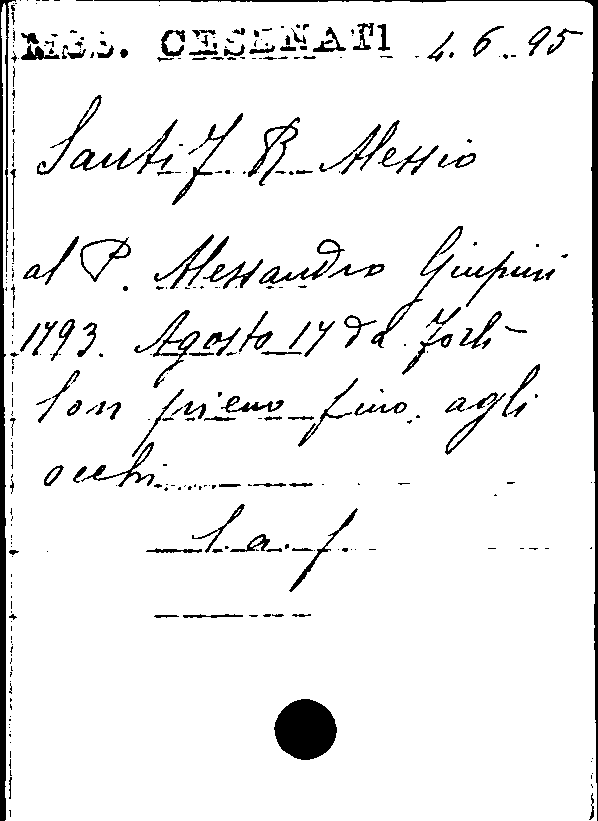 MSS. CESENATI 4.6.95
Santi F. R. Alessio
al P. Alessandro
1793. Agosto 17 da Forlì
Son pieno fino agli
occhi
l. a. f.